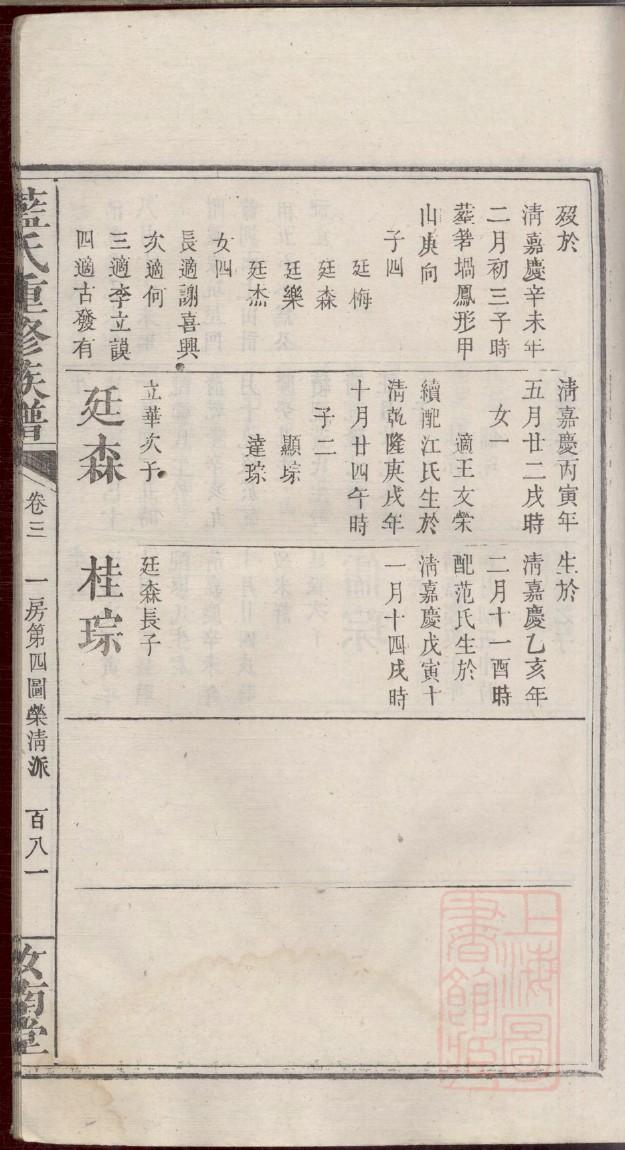 歿於
清嘉慶辛未年
二月初三子時
塟箬塌鳳形甲
山庚向
子四
廷梅
廷森
廷樂
廷杰
女四
長適謝喜興
次適何
三適李立謨
四適古發有
清嘉慶丙寅年
五月廿二戌時
女一
適王文榮
續配江氏生於
清乾隆庚戌年
十月廿四午時
子二
顯琮
達琮
立華次子
廷森
生於
清嘉慶乙亥年
二月十一酉時
配范氏生於
清嘉慶戊寅十
一月十四戌時
廷森長子
桂琮
藍氏重修族譜
卷三
一房第四圖榮清派
百八一
汝南堂
上海圖
書館藏